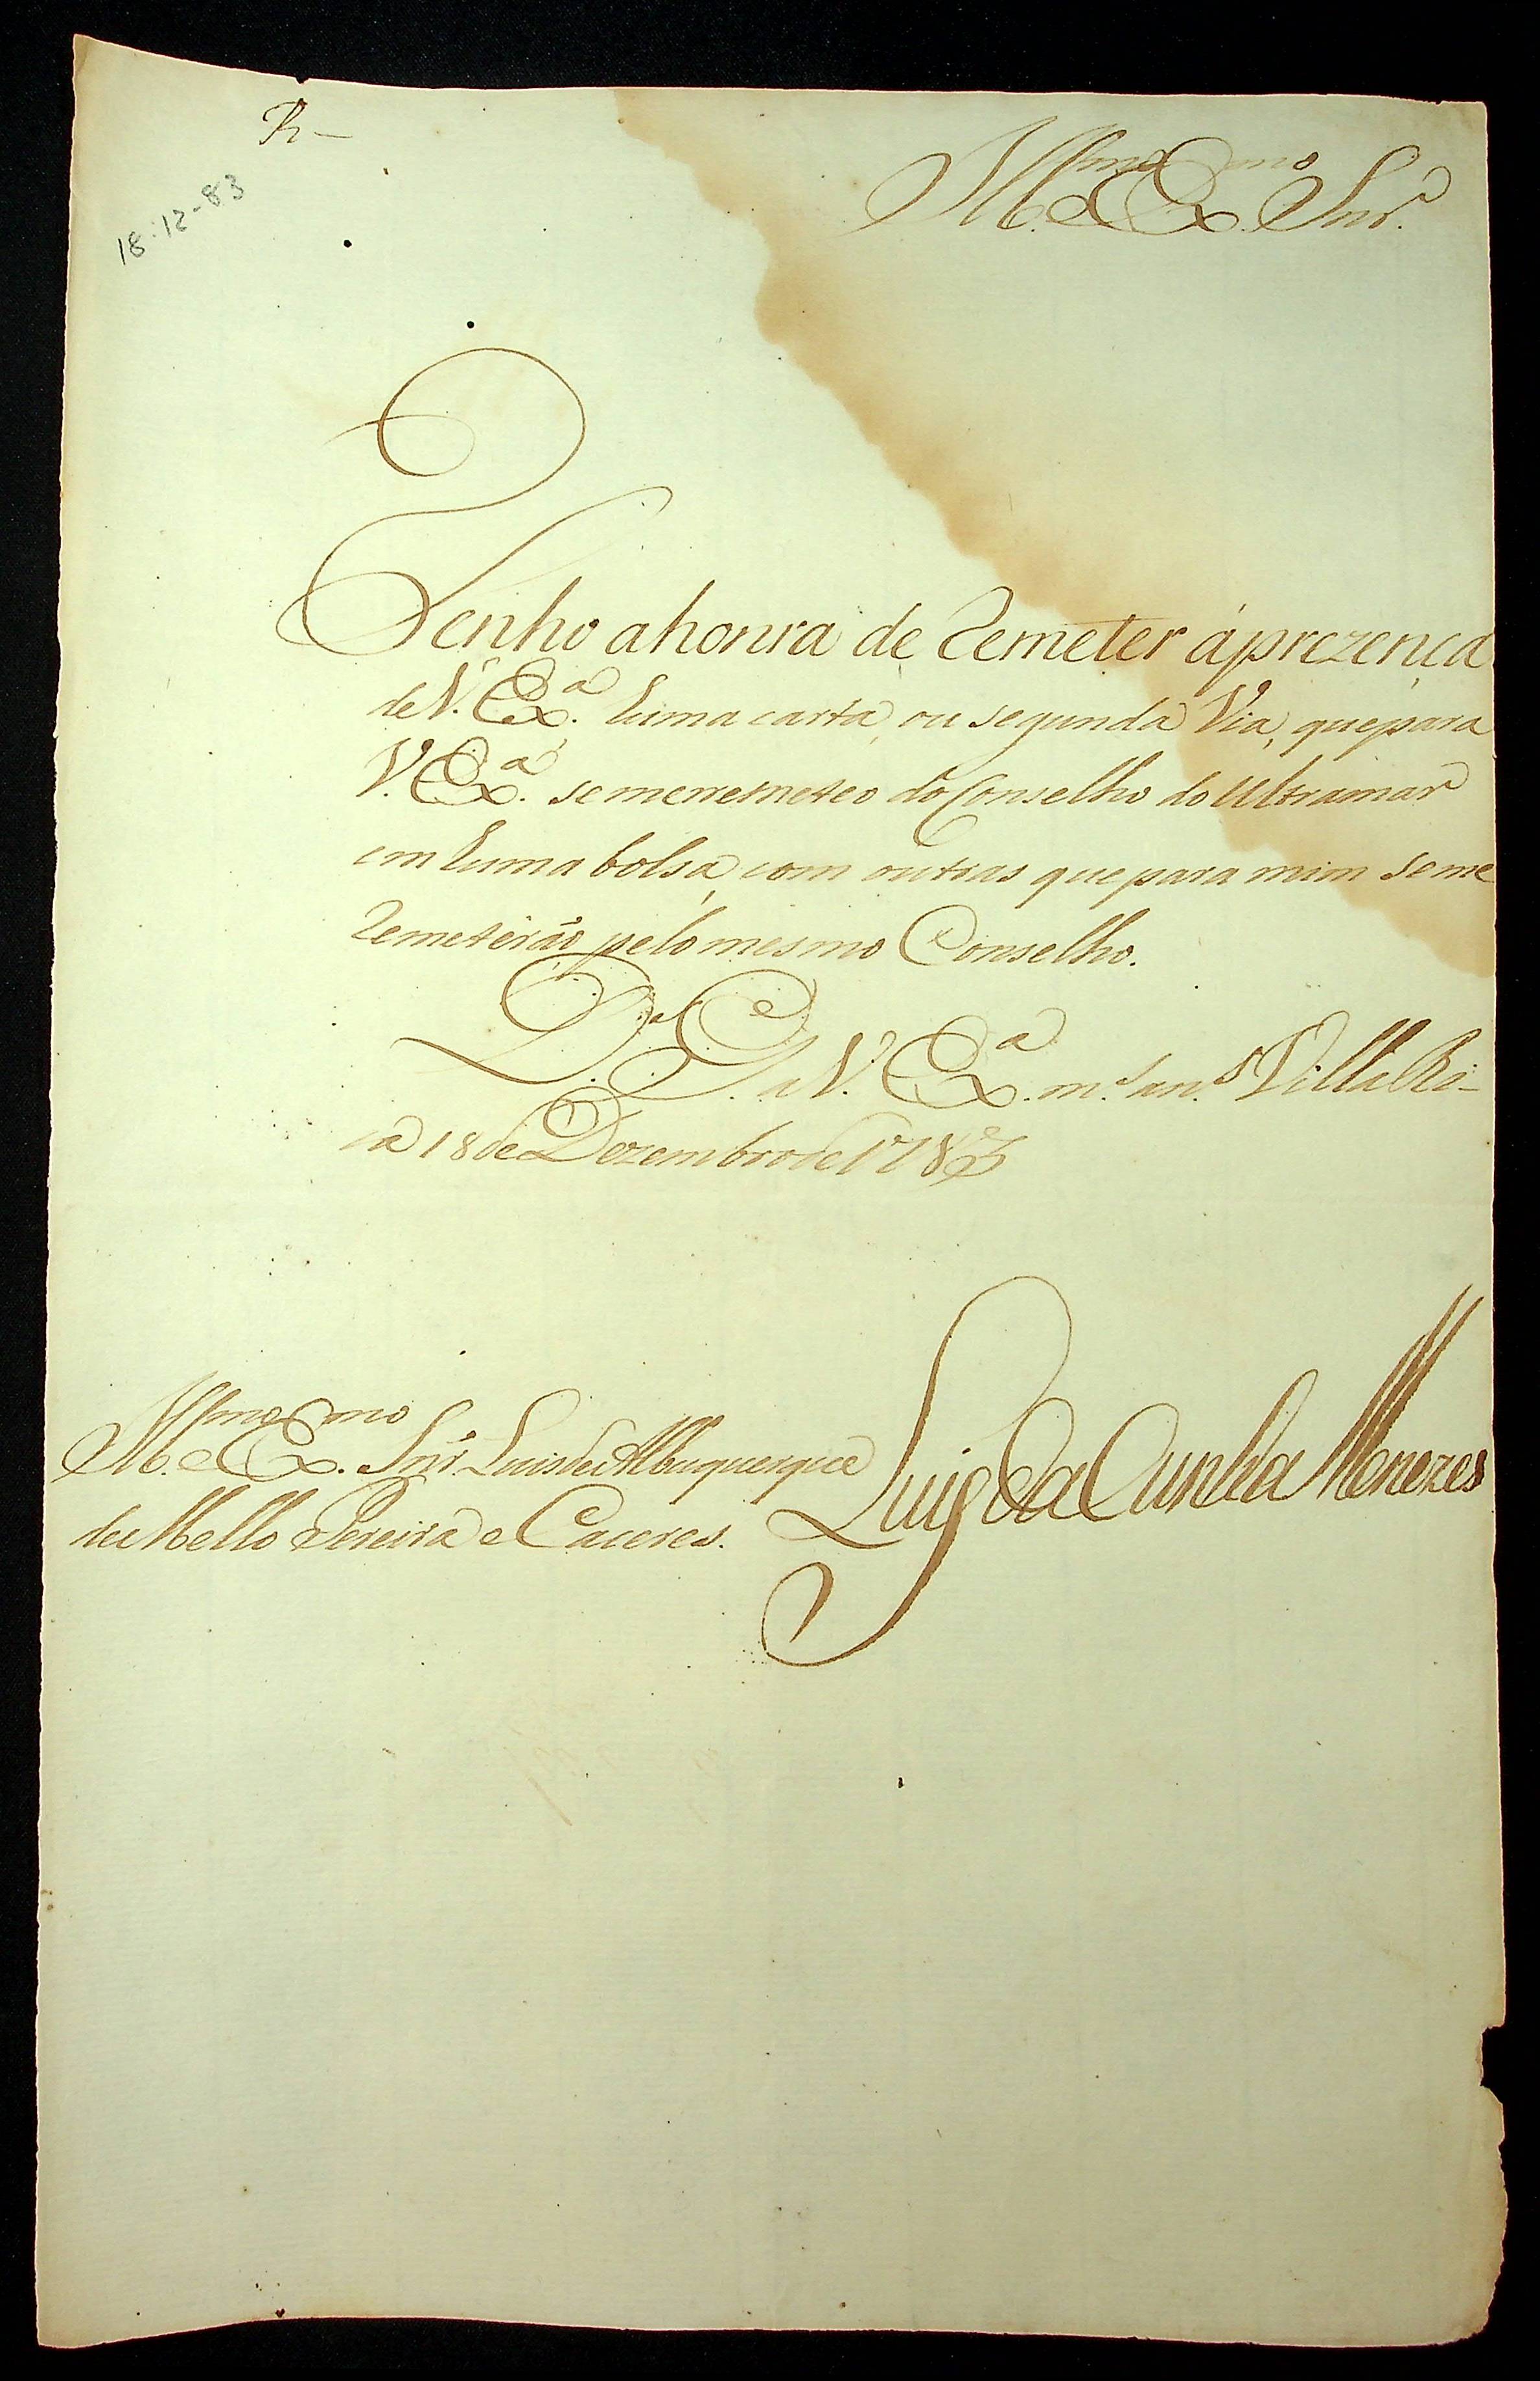 R—
18-12-83
Ill.mo e Ex.mo Snr.
Tenho a honra de remeter á prezença
de V. Ex.a huma carta, ou segunda Via, que para
V. Ex.a se me remeteo do Conselho do Ultramar
em huma bolsa, com outras que para mim se me
remeterão pelo mesmo Conselho.
D.s G.e a V. Ex.a m.s an.s Villa Ri-
ca 18 de Dezembro de 1783
Luis da Cunha Menezes
Ill.mo e Ex.mo Snr. Luis de Albuquerque
de Mello Pereira e Caceres.